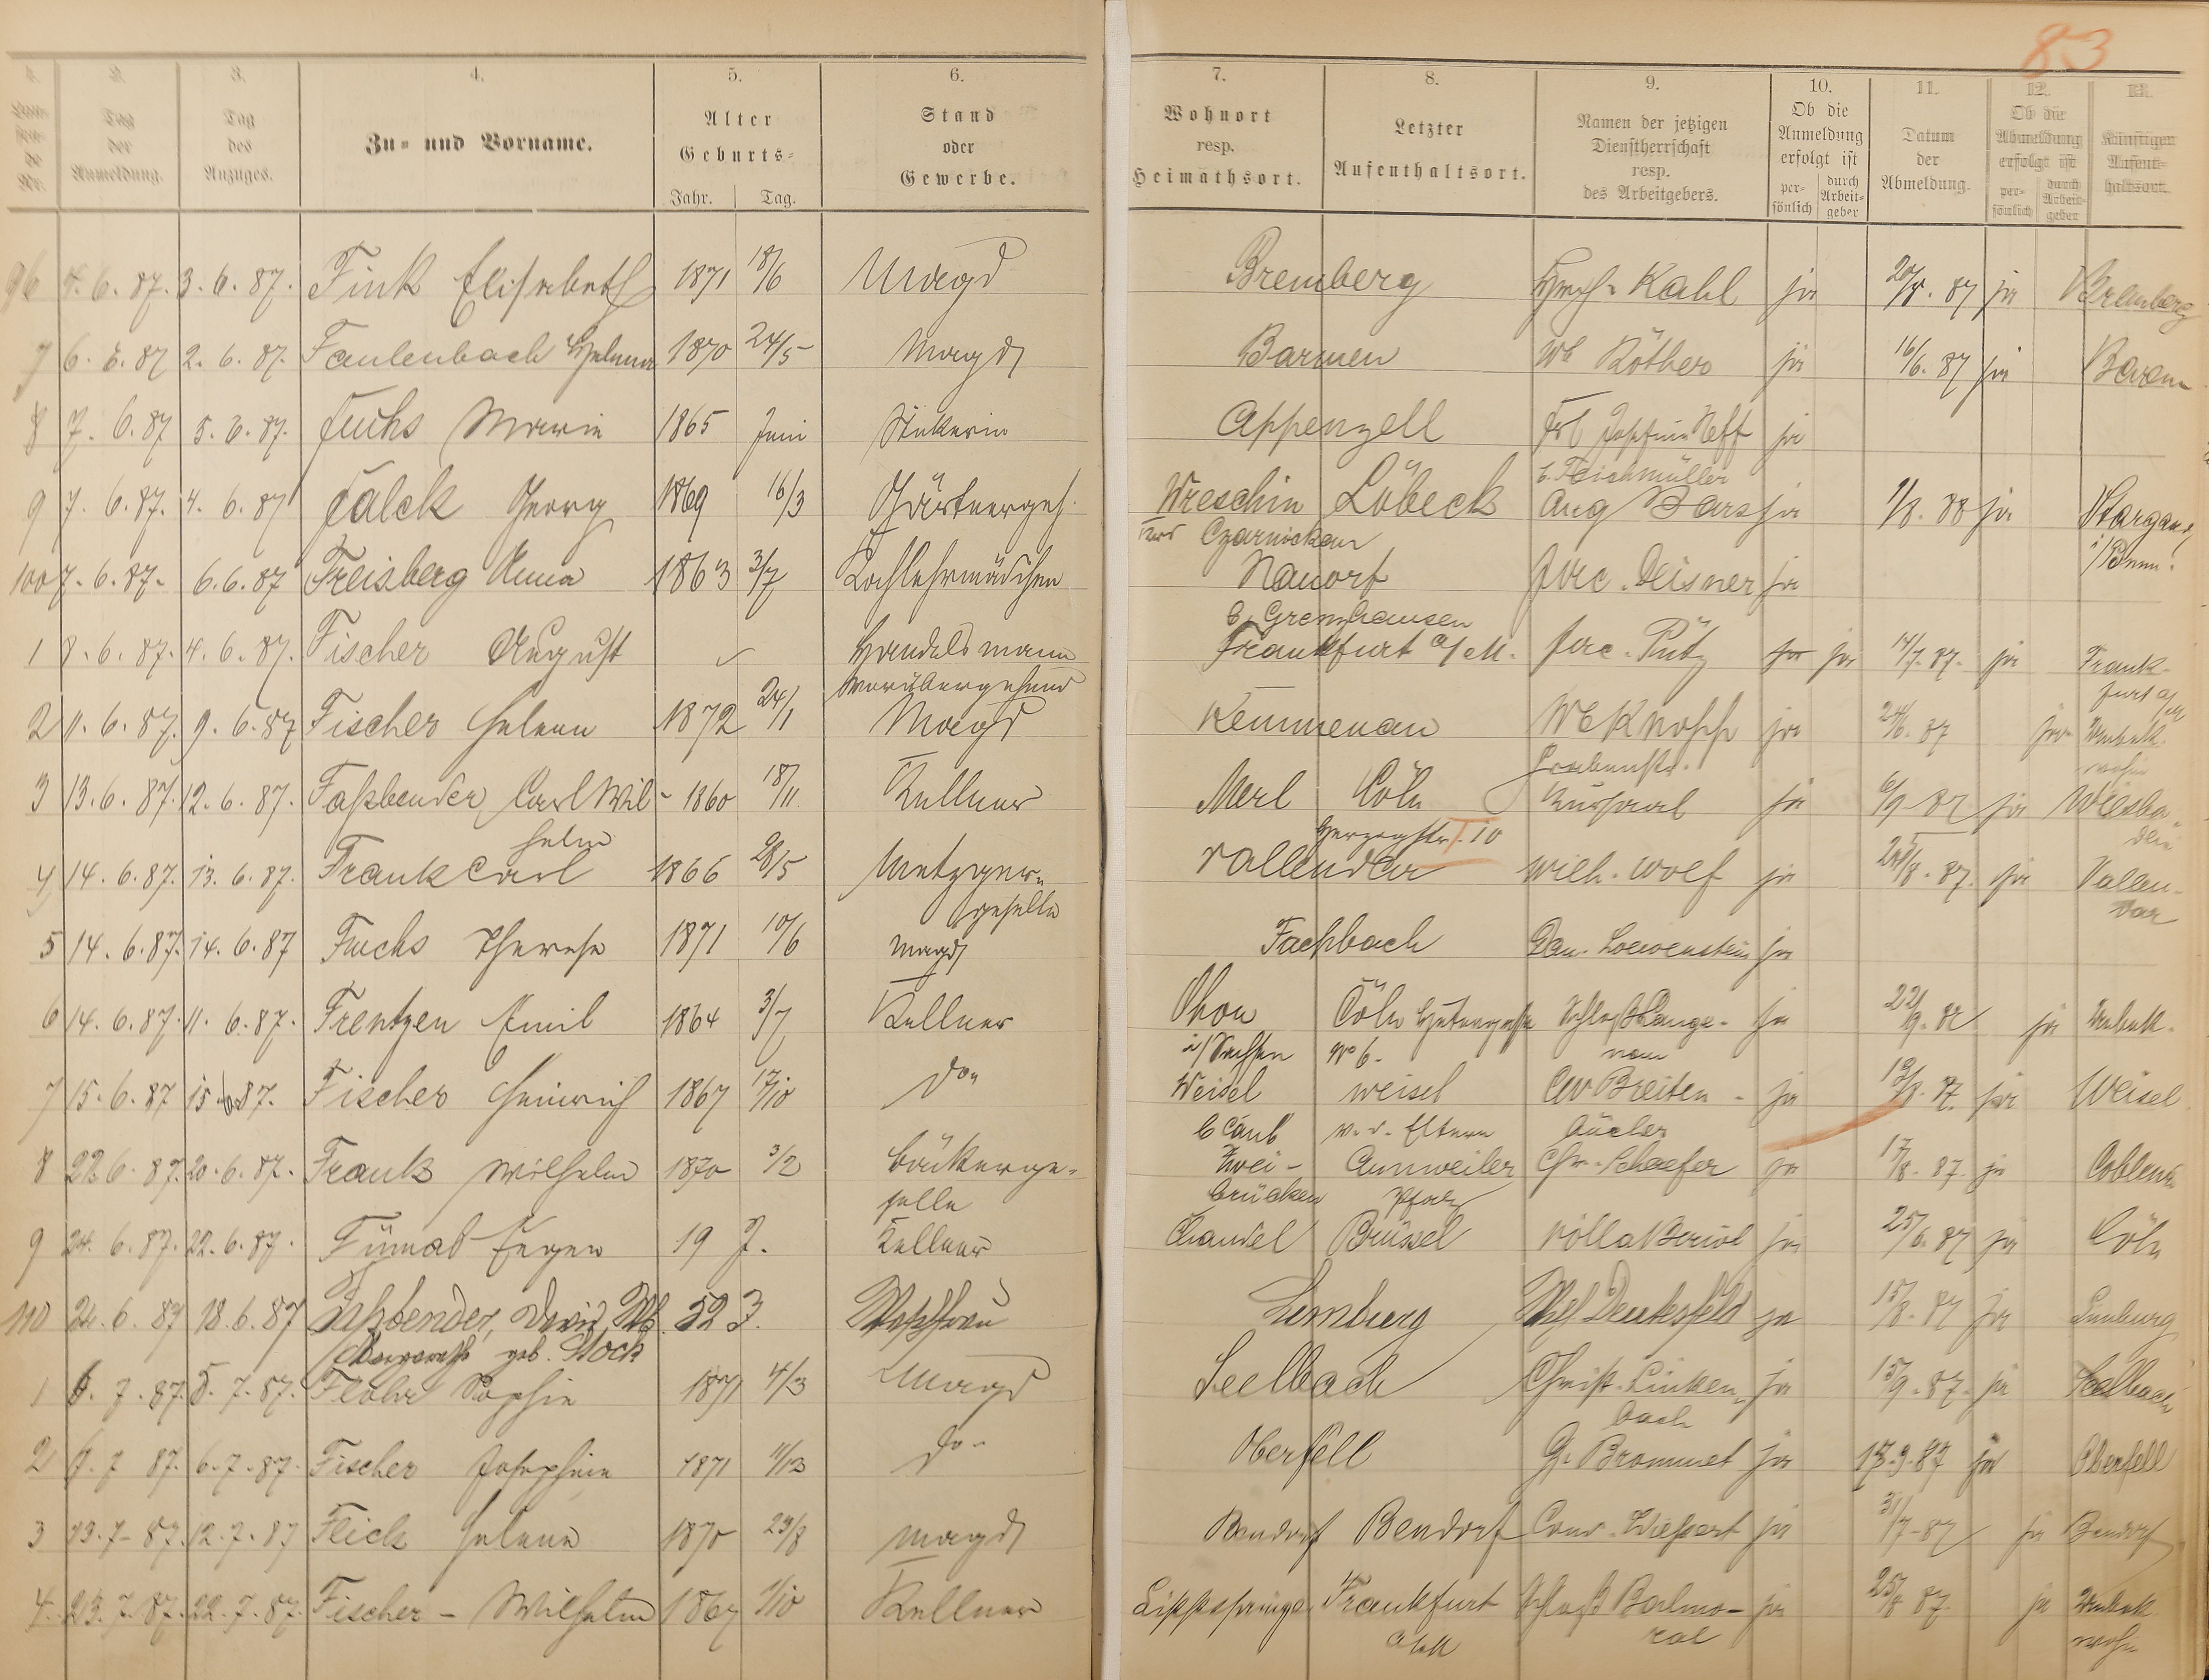 83
1. 2. 3. 4. 5. 6. 7. 8. 9. 10. 11. 12. 13.
Laufende Nr. Tag der Anmeldung. Tag des Anzuges. Zu- und Vorname. Alter Geburts- Jahr. Tag. Stand oder Gewerbe. Wohnort resp. Heimathsort. Letzter Aufenthaltsort. Namen der jetzigen Dienstherrschaft resp. des Arbeitgebers. Ob die Anmeldung erfolgt ist persönlich durch Arbeitgeber Datum der Abmeldung. Ob die Abmeldung erfolgt ist persönlich durch Arbeitgeber Künftigen Aufenthaltsort.
96 4. 6. 87. 3. 6. 87. Fink Elisabeth 1871 18/6 Magd Bremberg Kahl ja 87 ja Bremberg
7 6. 6. 87 2. 6. 87. Faulenbach Helena 1870 24/5 Magd Barmen Wb Röther ja 16/6. 87 ja Barmen
8 7. 6. 87 5. 6. 87. Fuchs Maria 1865 Juni Stickerin Appenzell Frl Josefine Neff ja
b. Teichmüller
9 7. 6. 87. 4. 6. 87 Falck Georg 1869 16/3 Gärtnergeh. Wreschin Lübeck Aug Bars ja 1/8. 88 ja Stargard
Czarnickau i/Pomm.
100 7. 6. 87. 6. 6. 87 Freisberg Anna 1863 3/7 Kochlehrmädchen Nauort Jac. Deisner ja
b. Grenzhausen
1 8. 6. 87. 4. 6. 87. Fischer August Handelsmann Frankfurt a/M. Jac. Pütz ja 14/7. 87. ja Frank-
vorübergehend furt a/M
2 11. 6. 87. 9. 6. 87 Fischer Helena 1872 24/1 Magd Kemmenau Wb Knopp ja 24/6. 87 ja Unbek.
Grabenstr. wohin
3 13. 6. 87. 12. 6. 87. Faßbender Carl Wil- 1860 18/11 Kellner Merl Cöln Kursaal ja 6/9 87 ja Wiesba-
helm Herzogstr. 10 den
4 14. 6. 87. 13. 6. 87. Frank Carl 1866 28/5 Metzger- Vallendar Wilh. Wolf ja 87. ja Vallen-
geselle dar
5 14. 6. 87. 14. 6. 87 Fuchs Therese 1871 10/6 Magd Fachbach Dan. Loewenstein ja
6 14. 6. 87. 11. 6. 87. Frentzen Emil 1864 3/7 Kellner Cöln Schloß Lange- ja 22/9. 87 ja Unbek.
i/Sachsen No 6. nau
7 15. 6. 87 15. 6. 87. Fischer Heinrich 1867 17/10 do Weisel Weisel Breiten- ja 87. ja Weisel
b Caub b. d. Eltern
8 22 6. 87. 20. 6. 87. Frank Wilhelm 1870 3/2 Bäckerge- Zwei- Annweiler Chr. Schaefer ja 17/8. 87 ja Coblenz
selle brücken Pfalz
9 24. 6. 87. 22. 6. 87. Eugen 19 J. Kellner Chandel Brüssel ja 25/6. 87 ja Cöln
110 24. 6. 87 18. 6. 87 Faßbender, David Wb. 52 J. Waschfrau Limburg Deutesfeld ja 15/8. 87 ja Limburg
Margareth geb. Stock
1 6. 7. 87. 5. 7. 87. Flohr Sophie 1871 4/3 Magd Seelbach Christ. Linken- ja 15/9. 87. ja Seelbach
bach
2 7. 7 87. 6. 7. 87. Fischer Josephine 1871 do. Oberfell G. Brommet ja 17. 9. 87 ja Oberfell
3 13. 7. 87. 12. 7. 87 Flick Helena 1870 29/8 Magd Bendorf Bendorf ja 31/7. 87 ja Bendorf
4. 23. 7. 87. 22. 7. 87. Fischer - Wilhelm 1867 1/10 Kellner Lippspringe Frankfurt Schloß Balmo- ja 25/8 87. ja Unbek.
a/M ral wohin